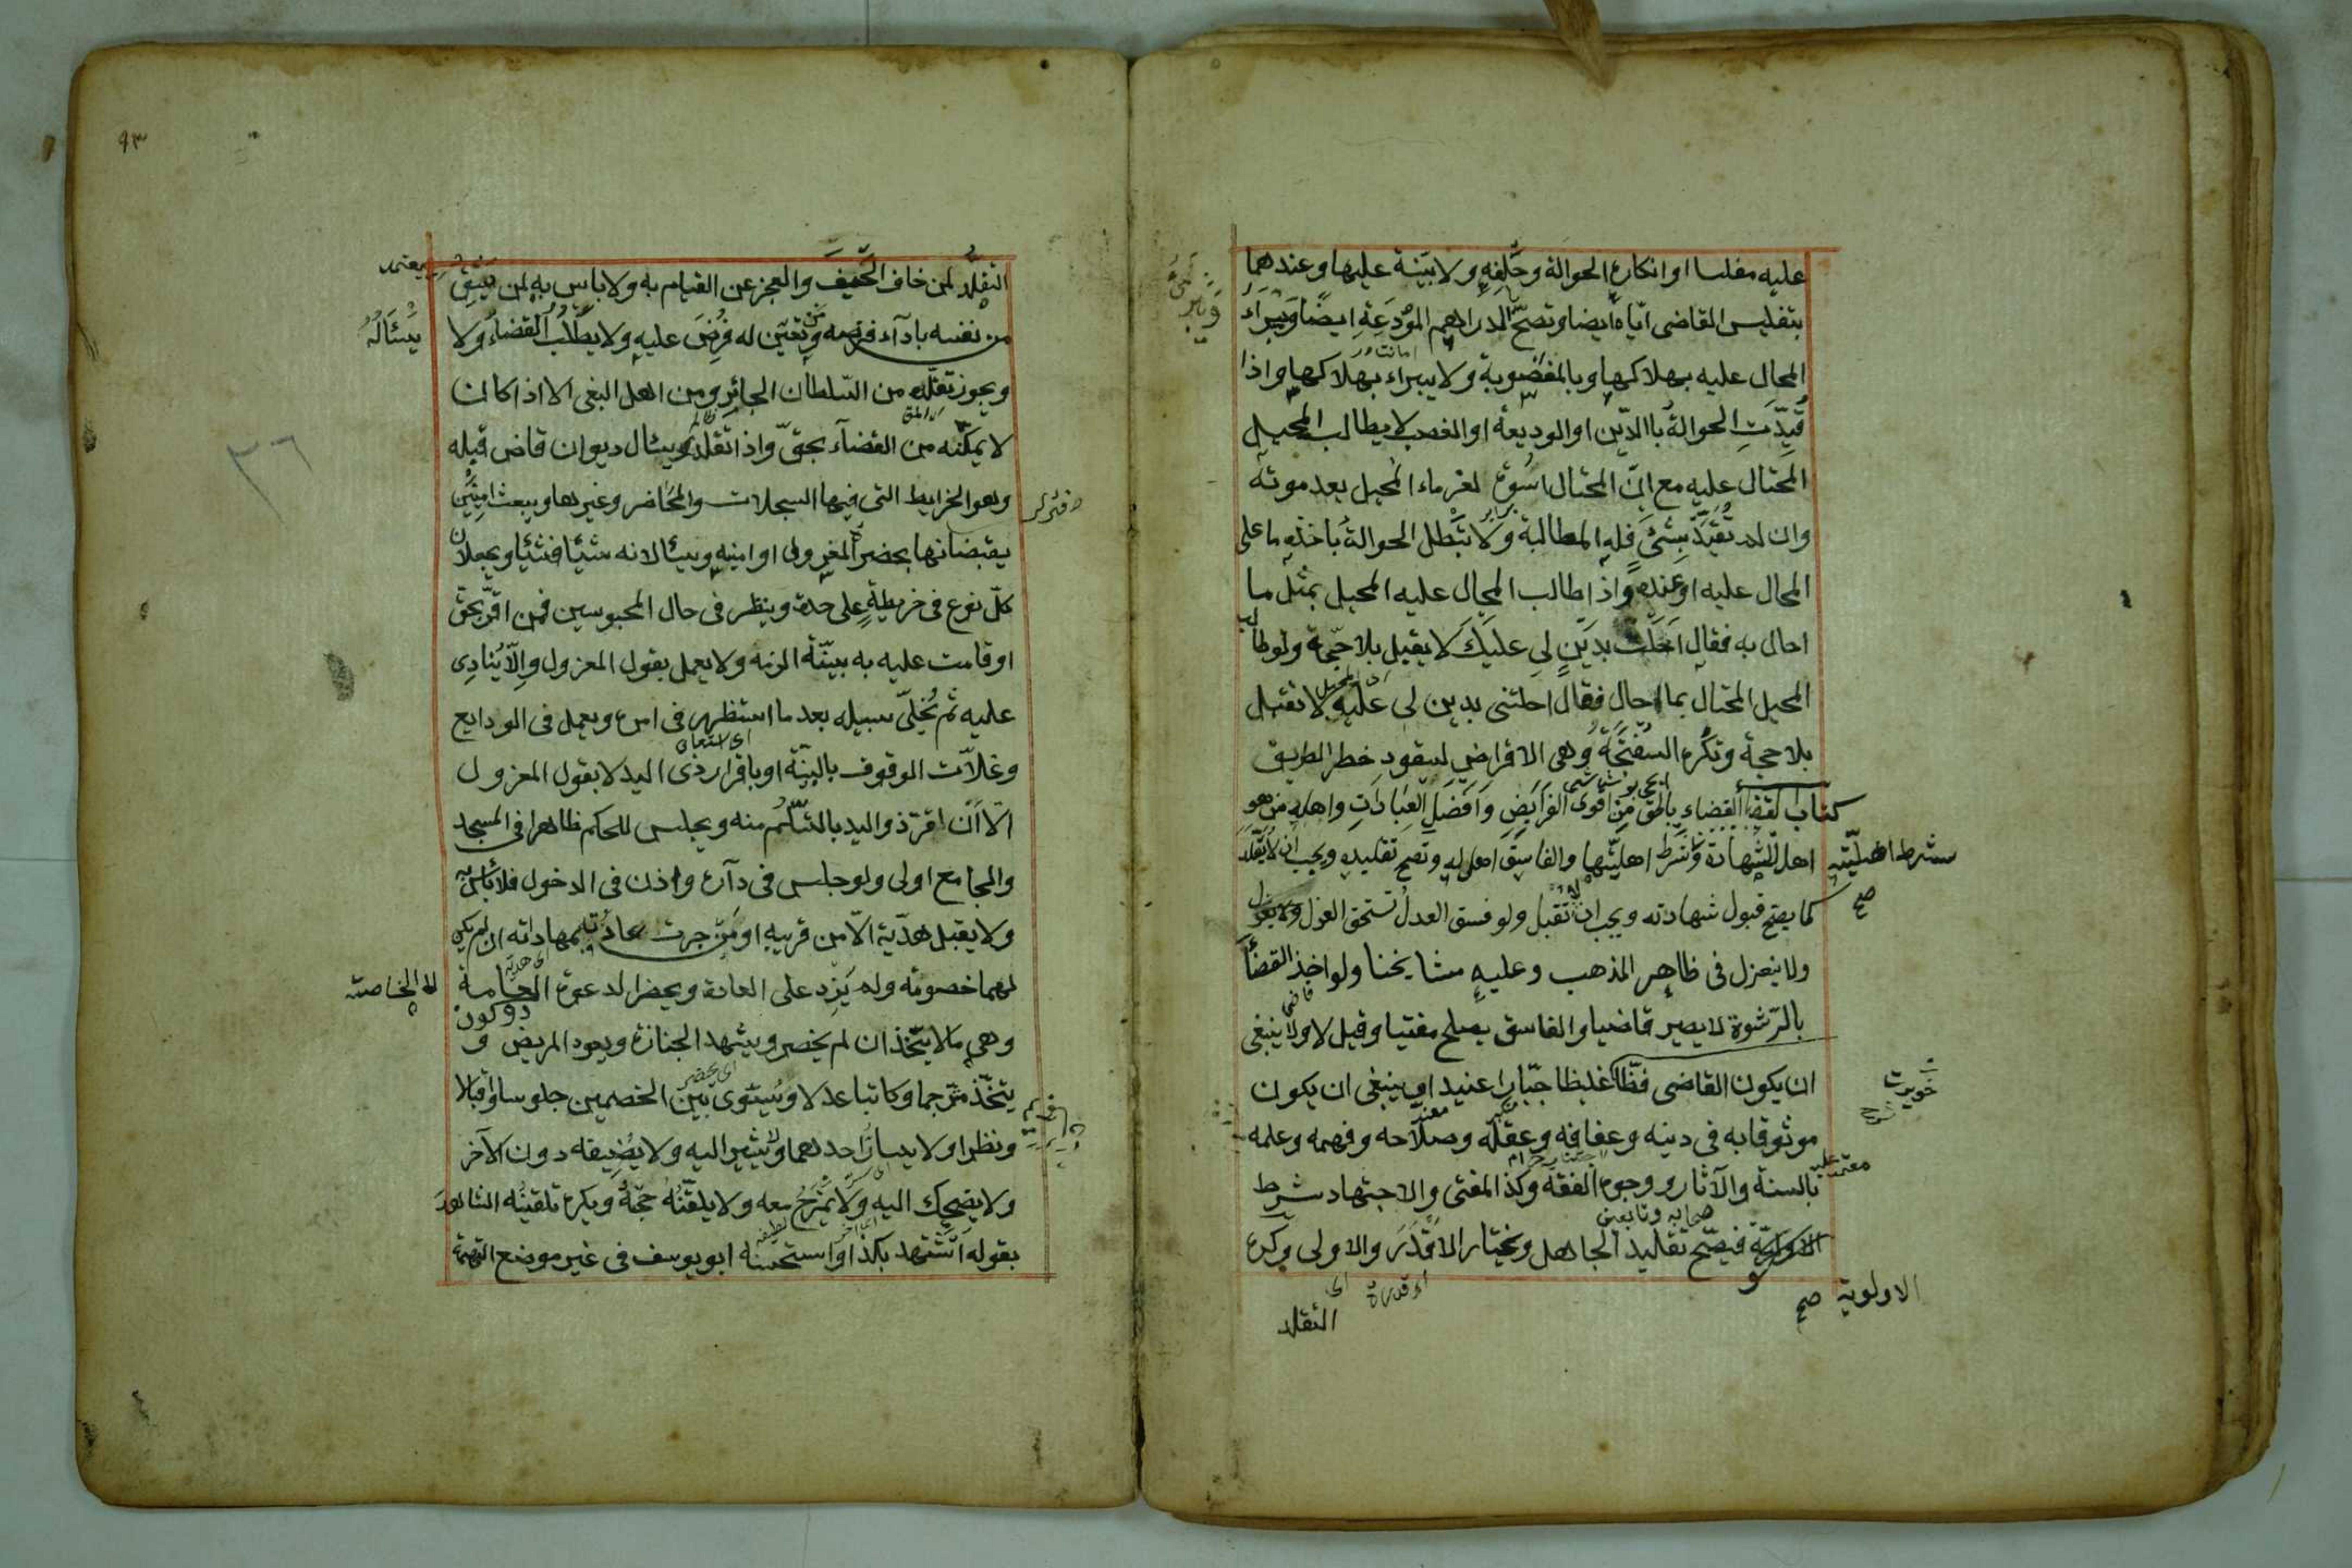 عليه مفلسا او انكاره الحوالة وحلفه ولا بينة عليها وعندهما
بتفليس القاضى اياه ايضا وتصح الدراهم المودعة ايضا ويبراء
المحال عليه بهلاكها وبالمغضوبة ولا يبراء بهلاكها واذا
قيدت الحوالة باالدين او الوديعة او الغصب لا يطالب المحيل
المحتال عليه مع ان المحتال اسوة لغرماء المحيل بعد موته
وان لم تقيد بشئ فله المطالبة ولا تبطل الحوالة باخذه ما على
المحال عليه او عنده واذا طالب المحال عليه المحيل بمثل ما
احال به فقال احلت بدين لى عليك لا يقبل بلا حجة ولو طالب
المحيل المحتال بما احال فقال احلتنى بدين لى عليه لا تقبل
بلا حجة وتكره السفتجة وهى الاقراض لسقوط خطر الطريق
كتاب القضا القضاء بالحق من اقوى الفرايض وافضل العبادات واهله من هو
اهل للشهادة وشرط اهليتها والفاسق اهل له وتصح تقليده ويجب ان لا يقلد
شرط اهليته
صح
كما يصح قبول شهادته ويجب ان لا تقبل ولو فسق العدل تستحق العزل
ولا ينعزل فى ظاهر المذهب وعليه مشايخنا ولو اخذ القضاء
بالرشوة لا يصير قاضيا والفاسق يصلح مفتيا وقيل لا ولا ينبغى
ان يكون القاضى فظا غليظا جبارا عنيدا وينبغى ان يكون
موثوقا به فى دينه وعفافه وعقله وصلاحه وفهمه وعلمه
بالسنة والآثار ووجوه الفقه وكذا المفتى والاجتهاد شرط
صحابه وتابعين
فيصح تقليد الجاهل ويختار الاقدر والاولى وكره
الاولوية صح
التقلد
٩٣
التقلد لمن خاف الحيف والعجز عن القيام به ولا باس به لمن يثق
من نفسه بادآء فرضه ومن تعين له فرض عليه ولا يطلب القضاء ولا
يسأله
ويجوز تقلده من السلطان الجائر ومن اهل البغى الا اذا كان
لا يمكنه من القضآء بحق واذا تقلد يسال ديوان قاض قبله
وهو الخرايط التى فيها السجلات والمحاضر وغيرها ويبعث امينين
يقبضانها بحضرة المعزول او امينه ويسالانه شيئا فشيئا ويجعلان
كل نوع فى خريطة على حدة وينظر فى حال المحبوسين فمن اقر بحق
او قامت عليه به بينة الزمه ولا يعمل بقول المعزول والا ينادى
عليه ثم يخلى سبيله بعد ما استظهر فى امره ويعمل فى الودايع
وغلات الوقوف بالبينة او باقرار ذى اليد لا بقول المعزول
الا ان اقر ذو اليد بالتسلم منه ويجلس للحكم ظاهرا فى المسجد
والجامع اولى ولو جلس فى داره واذن فى الدخول فلا باس به
ولا يقبل هدية الا من قريبه او ممن جرت عادته بمهاداته ان لم يكن
لهما خصومة ولم يزد على العادة ويحضر الدعوة العامة
لا الخاصة
وهى ما لا يتخذ ان لم يحضر ويشهد الجنازة ويعود المريض و
يتخذ مترجما وكاتبا عدلا ويستوى بين الخصمين جلوسا واقبالا
ونظرا ولا يسار احدهما ولا يشير اليه ولا يضيفه دون الآخر
ولا يضحك اليه ولا يمزح معه ولا يلقنه حجة ويكره تلقينه الشاهد
بقوله اتشهد بكذا واستحسنه ابو يوسف فى غير موضع التهمة